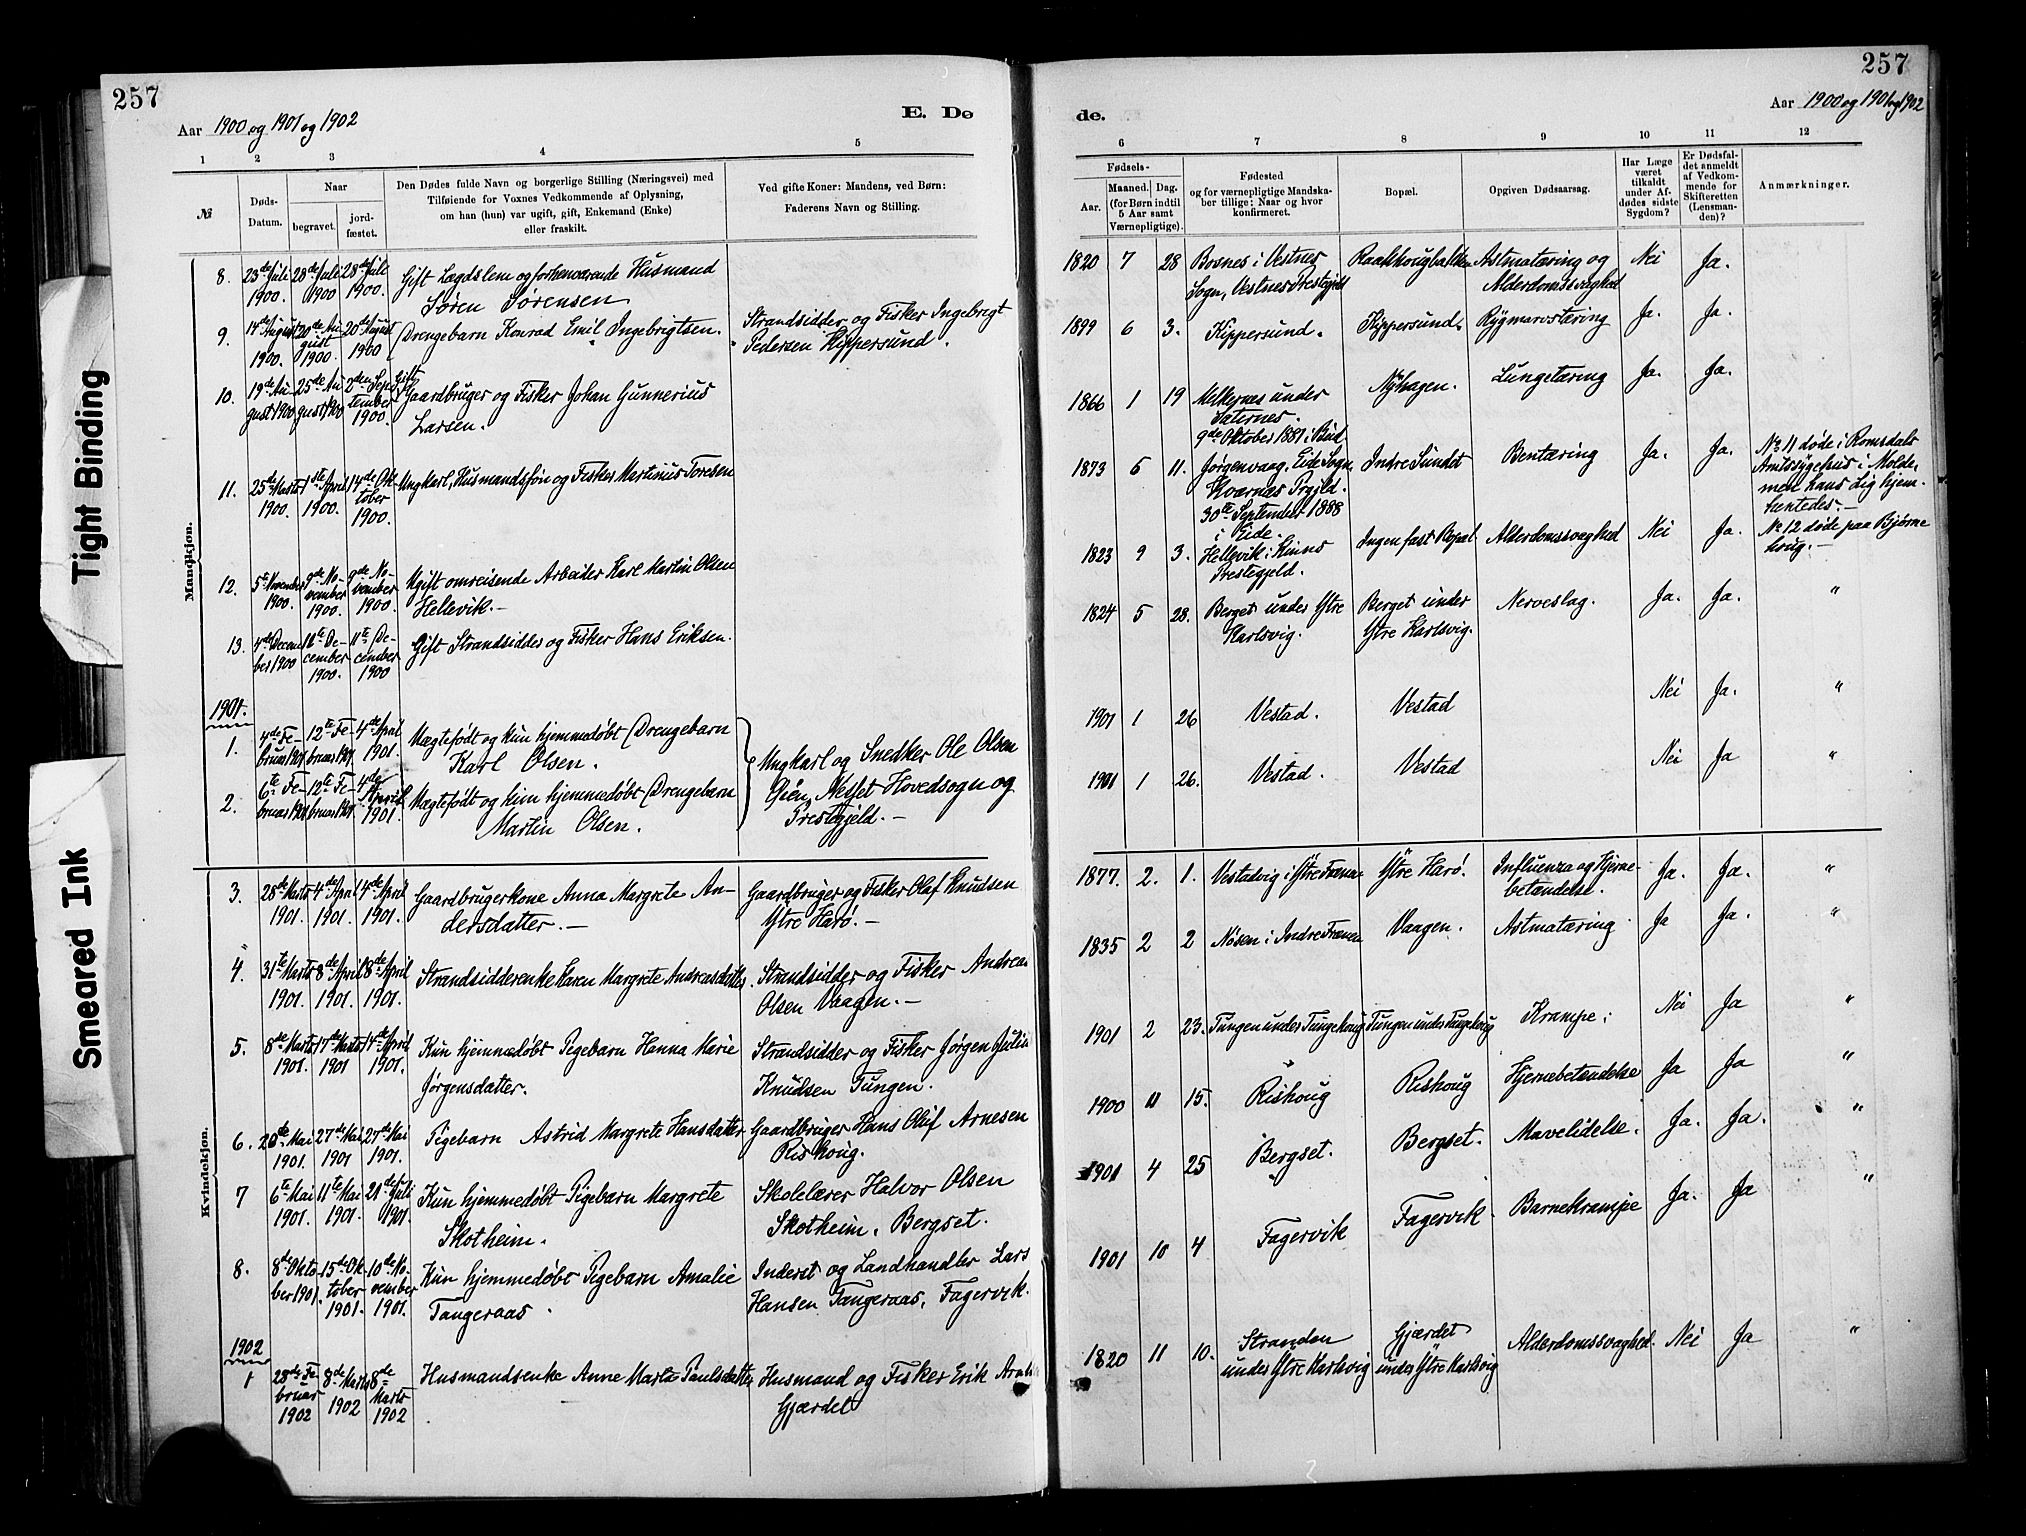 257
Aar 1900 og 1901 og 1902
E. Dø
1 2 3 4 5
№
Døds-
Datum.
Naar
begravet.
jord-
fæstet.
Den Dødes fulde Navn og borgerlige Stilling (Næringsvei) med
Tilføiende for Voxnes Vedkommende af Oplysning,
om han (hun) var ugift, gift, Enkemand (Enke)
eller fraskilt.
Ved gifte Koner: Mandens, ved Børn:
Faderens Navn og Stilling.
Mandkjøn.
8. 23de Juli 1900. 28de Juli 1900 28de Juli 1900. Gift Lægdslem og forhenværende Husmand
Søren Sørensen
9. 14de August 1900. 20de August 1900. 20de August 1900 Drengebarn Konrad Emil Ingebrigtsen. Strandsidder og Fisker Ingebrigt
Pedersen Kippersund.
10. 19de August 1900 25de August 1900 2den September 1900. Gift Gaardbruger og Fisker Johan Gunnerius
Larsen.
11. 25de Marts 1900. 1ste April 1900. 14de Oktober 1900. Ungkarl, Husmandssøn og Fisker Martinus Toresen
12. 5te November 1900. 9de November 1900. 9de November 1900. Ugift omreisende Arbeider Karl Martin Olsen
Hellevik.—
13. 4de December 1900 11te December 1900. 11te December 1900 Gift Strandsidder og Fisker Hans Eriksen.
1901.
1. 4de Februar 1901 12te Februar 1901 4de April 1901. Uægtefødt og kun hjemmedøbt Drengebarn
Karl Olsen.
2. 6te Februar 1901 12te Februar 1901 4de April 1901. Uægtefødt og kun hjemmedøbt Drengebarn
Martin Olsen.
Ungkarl og Snedker Ole Olsen
Øien, Nesset Hovedsogn og
Prestegjeld.—
Kvindekjøn.
3. 28de Marts 1901. 4de April 1901. 4de April 1901. Gaardbrugerkone Anna Margrete An-
dersdatter.— Gaardbruger og Fisker Olaf Knudsen
Ytre Harø.—
4. 31te Marts 1901. 8de April 1901. 8de April 1901. Strandsidderenke Karen Margrete Andreasdatter. Strandsidder og Fisker Andreas
Olsen Vaagen.—
5. 8de Marts 1901. 17de Marts 1901 14de April 1901. Kun hjemmedøbt Pigebarn Hanna Marie
Jørgensdatter. Strandsidder og Fisker Jørgen Julius
Knudsen Tungen.
6. 20de Mai 1901. 27de Mai 1901 27de Mai 1901. Pigebarn Astrid Margrete Hansdatter Gaardbruger Hans Oluf Arnesen
Rishoug.
7 6te Mai 1901. 11te Mai 1901. 21de Juli 1901. Kun hjemmedøbt Pigebarn Margrete
Skotheim. Skolelærer Halvor Olsen
Skotheim. Bergset.
8. 8de Oktober 1901. 15de Oktober 1901. 10de November 1901. Kun hjemmedøbt Pigebarn Amalie
Tangeraas. Inderst og Landhandler Lars
Hansen Tangeraas, Fagervik.
1902
1 28de Februar 1902 8de Marts 1902 8de Marts 1902 Husmandsenke Anne Marta Paulsdatter Husmand og Fisker Erik
Gjærdet
257
de.
Aar 1900 og 1901 og 1902
6 7 8 9 10 11 12
Fødsels-
Aar.
Maaned. Dag.
(for Børn indtil
5 Aar samt
Værnepligtige).
Fødested
og for værnepligtige Mandska-
ber tillige: Naar og hvor
konfirmeret.
Bopæl.
Opgiven Dødsaarsag.
Har Læge
været
tilkaldt
under Af-
dødes sidste
Sygdom?
Er Dødsfal-
det anmeldt
af Vedkom-
mende for
Skifteretten
(Lensman-
den)?
Anmærkninger.
1820 7 28 Bosnes i Vestnes
Sogn, Vestnes Prestegjeld Raakhougbakken Astmatæring og
Alderdomssvaghed Nei Ja.
1899 6 3. Kippersund. Kippersund. Rygmarvstæring Ja. Ja.
1866 1 19 Melkernes under
Saternes.
9de Oktober 1881 i Bud Nyhagen. Lungetæring Ja. Ja.
1873 5 11. Jørgenvaag, Eide Sogn,
Kvernæs Prgjld.
30te September 1888
i Eide. Indre Sundet Bentæring Ja. Ja. No 11 døde i Romsdals
Amtssygehus i Molde,
men hans Lig hjem-
hentedes.—
1823 9 3. Hellevik i Kinns
Prestegjeld. Ingen fast Bopæl Alderdomssvaghed Nei Ja. No 12 døde paa Bjørne
houg.—
1824 5 28. Berget under Ytre
Karlsvig. Berget under
Ytre Karlsvig. Nerveslag. Ja. Ja. "
1901 1 26 Vestad. Vestad Nei Ja. "
1901 1 26. Vestad. Vestad Nei Ja "
1877. 2. 1. Vestadvig i Ytre Frænen Ytre Harø. Influenza og Hjerne-
betændelse. Ja. Ja. "
1835 2 2 Nøsen i Indre Frænen Vaagen. Astmatæring. Ja Ja. "
1901 2 23. Tungen under Tungehoug Tungen under Tungehoug Krampe. Nei Ja "
1900 11 15. Rishoug Rishoug Hjernebetændelse Ja Ja "
1901 4 25 Bergset. Bergset. Mavelidelse. Ja. Ja. "
1901 10 4 Fagervik Fagervik. Barnekrampe Ja. Ja "
1820 11 10. Stranden
under Ytre Karlsvig Gjærdet
under Ytre Karlsvig Alderdomssvaghed. Nei Ja "
Tight Binding
Smeared Ink